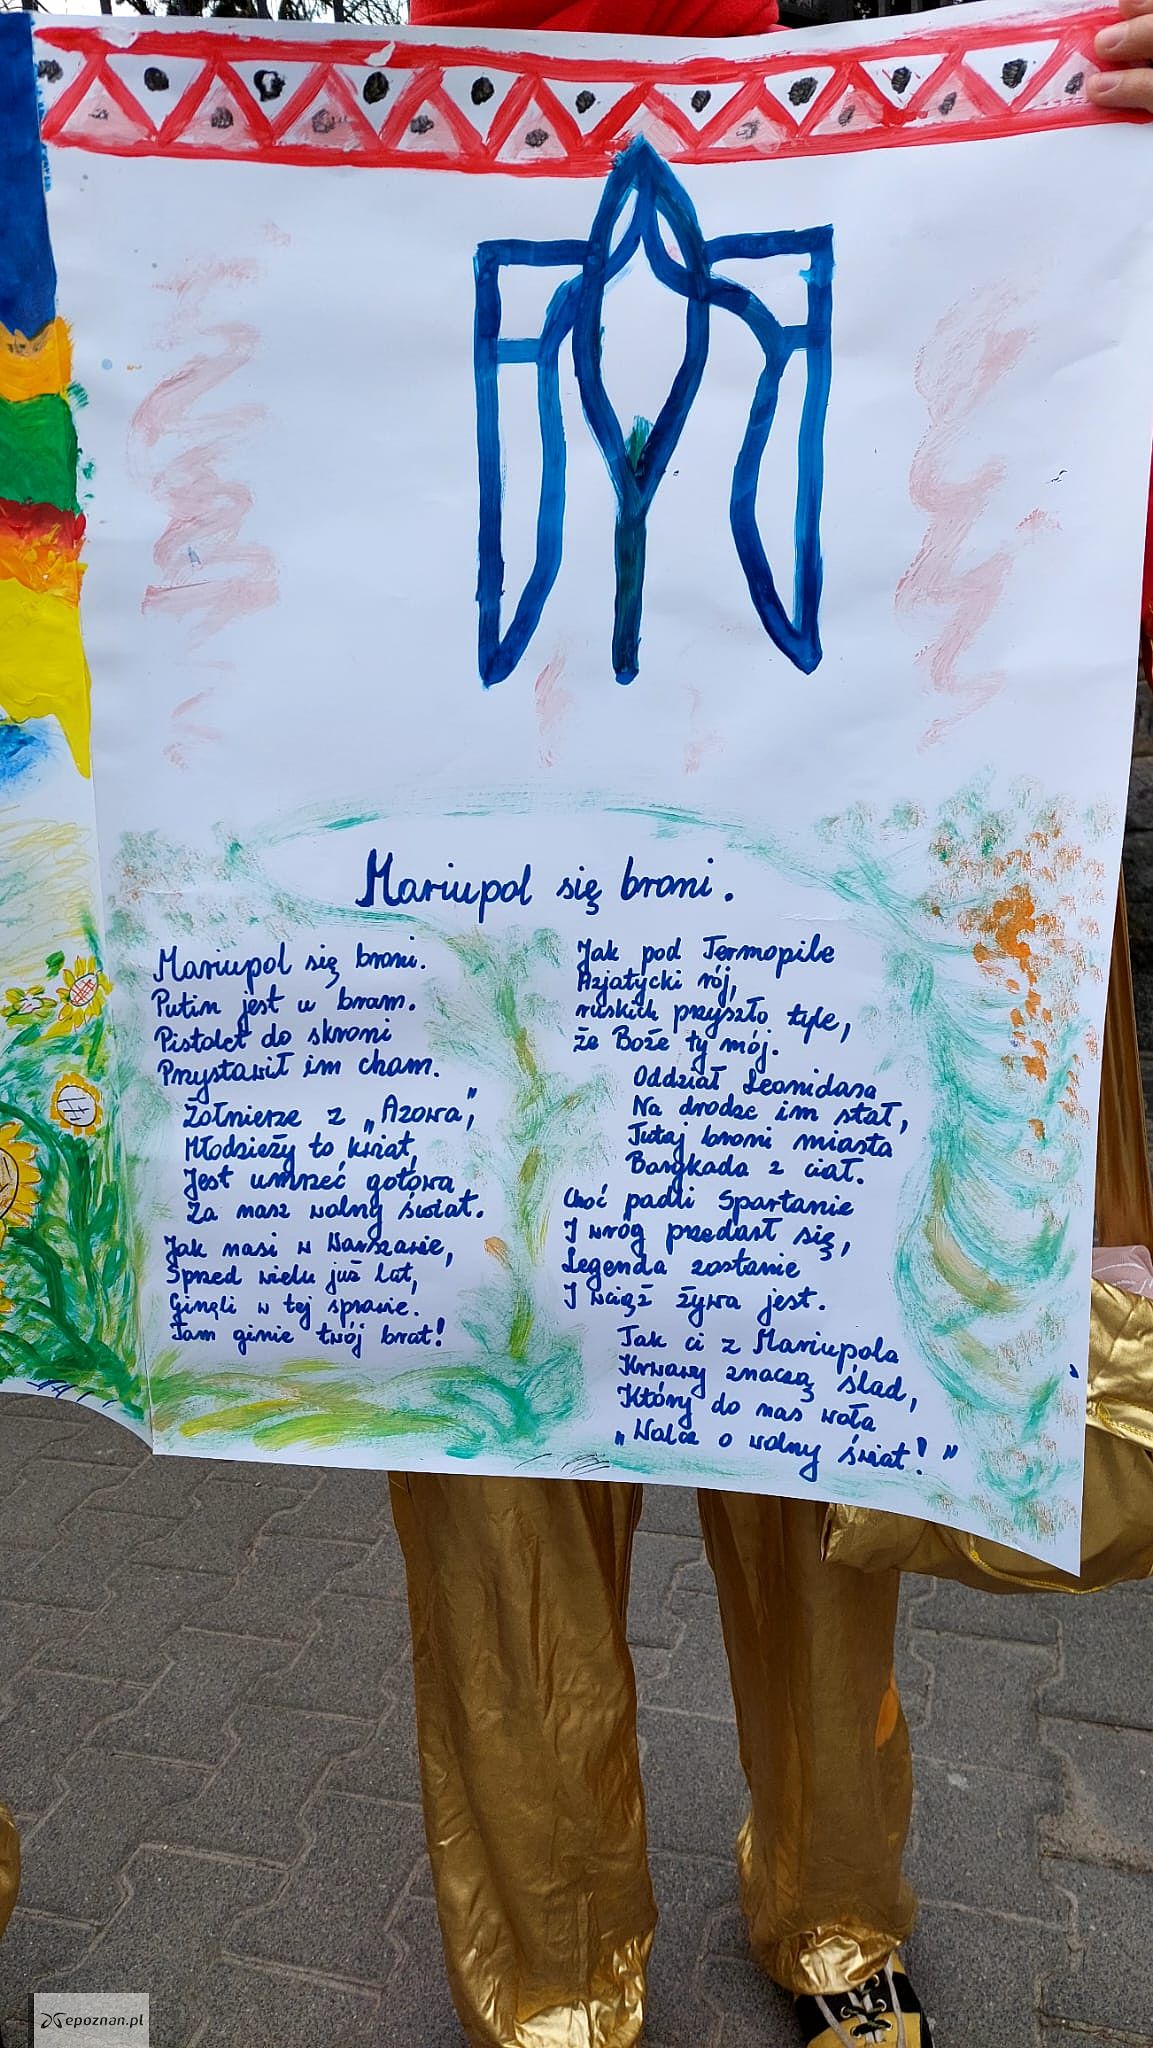 Mariupol się broni.
Mariupol się broni.
Putin jest u bram.
Pistolet do skroni
Przystawił im cham.
Żołnierze z „Azowa",
Młodzieży to kwiat,
Jest umrzeć gotowa
Za nasz wolny świat.
Jak nasi w Warszawie,
Sprzed wielu już lat,
Ginęli w tej sprawie.
Tam ginie twój brat!
Jak pod Termopile
Azjatycki rój,
ruskich przyszło tyle,
że Boże ty mój.
Oddział Leonidasa
Na drodze im stał,
Tutaj broni miasta
Barykada z ciał.
Choć padli Spartanie
I wróg przedarł się,
Legenda zostanie
I wciąż żywa jest.
Tak ci z Mariupola
Krwawy znaczą ślad,
Który do nas woła
„Walcz o wolny świat!"
epoznan.pl